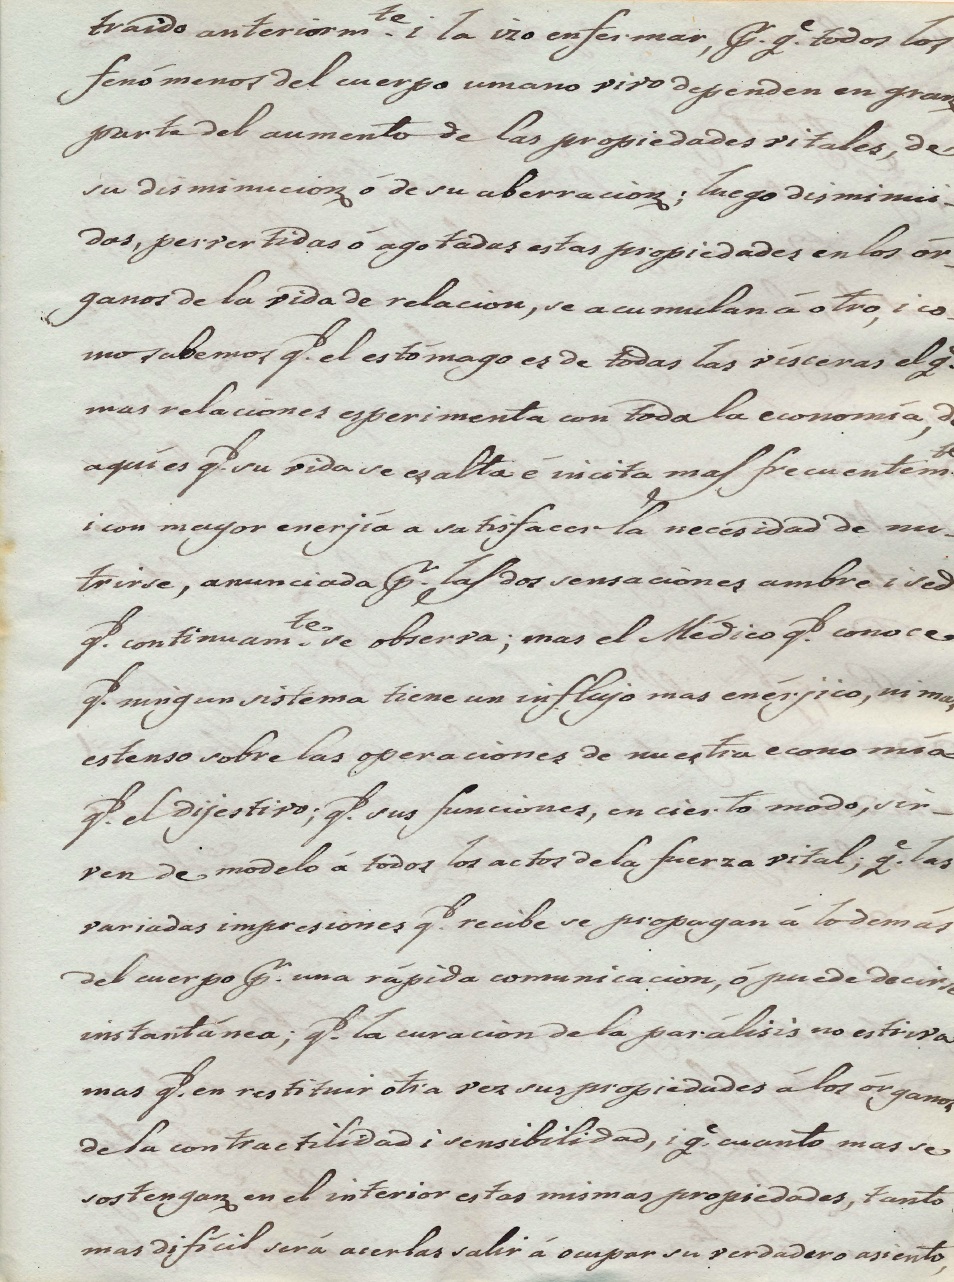 traido anteriorm.te i la izo enfermar, p.r q.e todos los
fenómenos del cuerpo umano vivo dependen en gran
parte del aumento de las propiedades vitales, de
su disminucion ó de su aberracion; luego disminui-
das, pervertidas ó agotadas estas propiedades en los ór-
ganos de la vida de relacion, se acumulan á otro, i co-
mo sabemos q.e el estómago es de todas las vísceras el q.e
mas relaciones esperimenta con toda la economía, de
aquí es q.e su vida se ezalta é incita mas frecuentem.te
i con mayor enerjía a satisfacer la necesidad de nu-
trirse, anunciada p.r las dos sensaciones ambre i sed
q.e continuam.te se observa; mas el Médico q.e conoce
q.e ningun sistema tiene un influjo mas enérjico, ni mas
estenso sobre las operaciones de nuestra economía
q.e el dijestivo; q.e sus funciones, en cierto modo, sir-
ven de modelo á todos los actos de la fuerza vital; q.e las
variadas impresiones q.e recibe se propagan á lo demás
del cuerpo p.r una rápida comunicacion, ó puede decirse
instantánea; q.e la curacion de la parálisis no estriva
mas q.e en restituir otra vez sus propiedades á los órganos
de la contractilidad i sensibilidad, i q.e cuanto mas se
sostengan en el interior estas mismas propiedades, tanto
mas difícil será acerlas salir á ocupar su verdadero asiento,